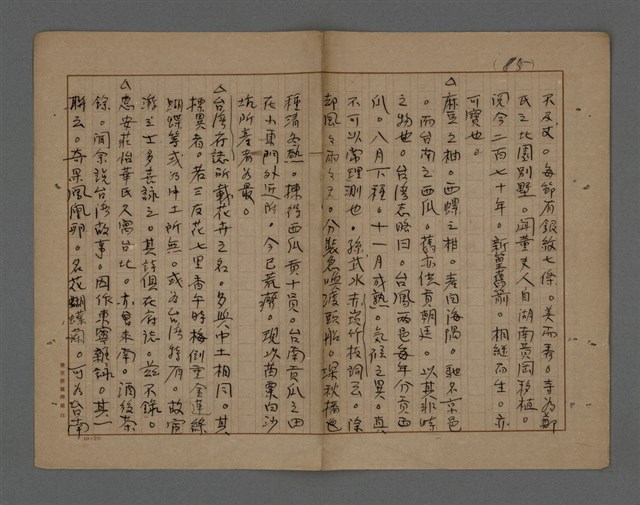 (85)
不及丈。每節有銀紋七條。美而秀。寺為鄭
氏之北園別墅。聞董夫人自湖南黃岡移植。
閱今二百七十年。新篁舊籜。相繼而生。亦
可寶也。
△麻豆之柚。西螺之柑。產自海隅。馳名京邑
。而台南之西瓜。舊亦供貢朝廷。以其非時
之物也。台灣志略曰。台鳳兩邑每年分貢西
瓜。八月下種。十一月成熟。氣候之異。真
不可以常理測也。孫武水赤崁竹枝詞云。條
却風々雨々天。分裝急喚渡頭船。深秋播
種清冬熟。揀得西瓜貢十員。台南貢瓜之田
在小東門外近所。今已荒癈。現以茵栗白沙
坑所產者為最。
△台灣府誌所載花卉之名。多與中土相同。其
種異者。若三友花七里香午時梅倒垂金蓮絲
蝴蝶等或為中土所無。或為台灣特有。故宦
游之士多喜詠之。其詩俱在府誌。茲不錄。
△惠安莊怡華氏久寓台北。亦曾來南。酒後茶
餘。聞余說台灣故事。因作東寧雜詠。其一
聯云。奇果鳳凰卵。名花蝴蝶蘭。可為台南
10×20